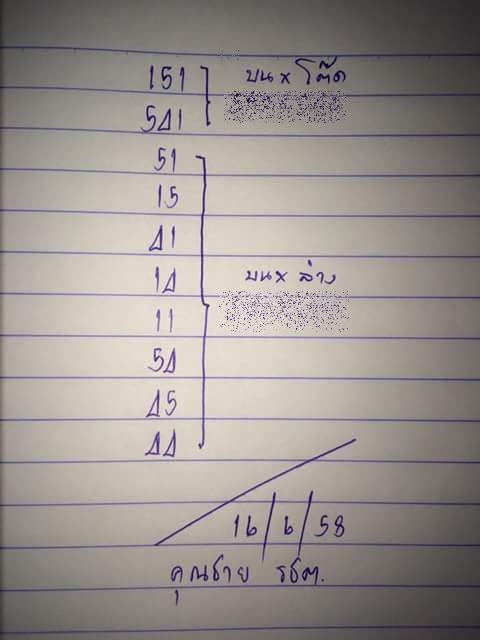 151
541
บน x โต๊ด
51
15
41
14
11
54
45
44
บน x ล่าง
16/6/58
คุณชาย รชต.